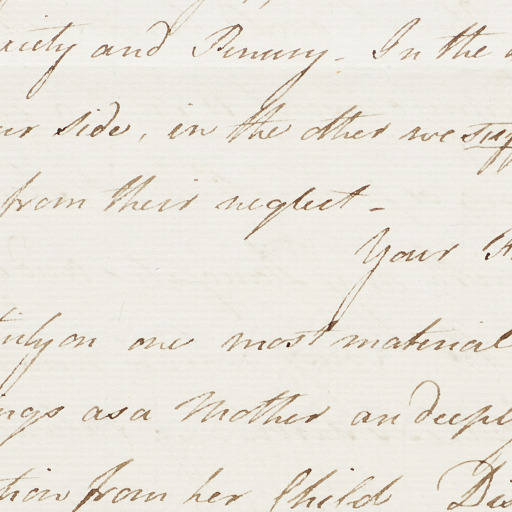 and Penury - In the
side, in the other we
from their neglect -
Your
on one most material
as a Mother an deeply
from her Child